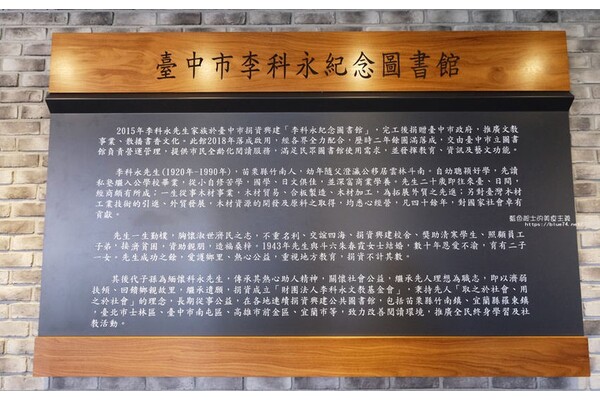 臺中市李科永紀念圖書館
2015年李科永先生家族於臺中市捐資興建「李科永紀念圖書館」，完工後捐贈臺中市政府，推廣文教
事業、散播書香文化。此館2018年落成啟用，經各界全力配合，歷時二年餘圓滿落成，交由臺中市立圖書
館負責營運管理，提供市民全齡化閱讀服務，滿足民眾圖書使用需求，並發揮教育、資訊及藝文功能。
李科永先生(1920年-1990年)，苗栗縣竹南人，幼年隨父澄瀛公移居雲林斗南。自幼聰穎好學，先讀
私塾繼入公學校畢業，從小自修苦學，國學、日文俱佳，並深富商業學養。先生二十歲即往來臺、日間，
經商頗有所成；一生從事木材事業，木材貿易、合板製造、木材加工，為拓展外貿之先進；另對臺灣木材
工業技術的引進、外貿發展、木材資源的開發及原料之取得，均悉心經營，凡四十餘年，對國家社會卓有
貢獻。
先生一生勤樸，胸懷淑世濟民之志，不重名利，交遊四海，捐資興建校舍、獎助清寒學生、照顧員工
子弟，接濟貧困，資助親朋，造福桑梓。1943年先生與斗六朱春霞女士結婚，數十年恩愛不渝，育有二子
一女。先生成功之餘，愛護鄉里，熱心公益，重視地方教育，捐資不計其數。
其後代子孫為緬懷科永先生，傳承其熱心助人精神，關懷社會公益，繼承先人理想為職志，即以濟弱
扶傾、回饋鄉親故里，繼承遺願，捐資成立「財團法人李科永文教基金會」，秉持先人「取之於社會、用
之於社會」的理念，長期從事公益，在各地連續捐資興建公共圖書館，包括苗栗縣竹南鎮、宜蘭縣羅東鎮
，臺北市士林區、臺中市南屯區、高雄市前金區、宜蘭市等，致力改善閱讀環境，推廣全民終身學習及社
教活動。
藍色爵士的美度主義
https://blue74.net